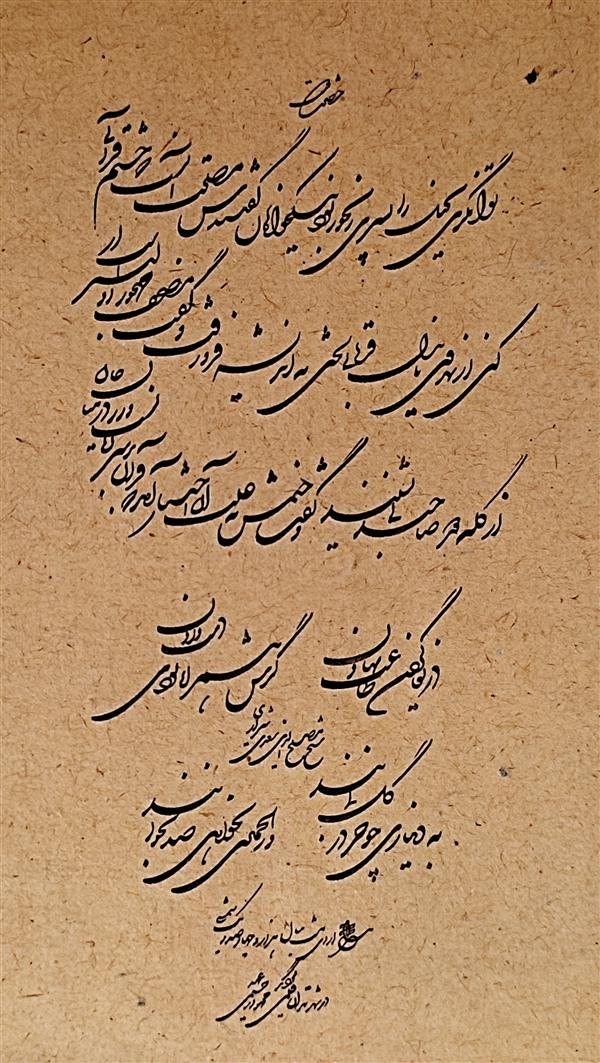 توانگری بخیل را پسری رنجور بود نیکخواهان گفتندش مصلحت آنست که ختم قرآنی
کنی از بهر وی یا بذل قربانی لختی به اندیشه فرو رفت و گفت مصحف مهجور اولیتر است
از گله دور صاحبدلی بشنید و گفت ختمش به علت آن اختیار آمد که قرآن بر سر زبان است و زر در میان جان
دریغا گردن طاعت نهادن گرش همراه نبودی دست دادن
شیخ مصلح الدین سعدی شیرازی
به دیناری چو خر در گل بمانند ور الحمدی بخواهی صد بخوانند
اردیبهشت سال هزار و چهارصد و یک شمسی
در شهر تهران قلمی گردید